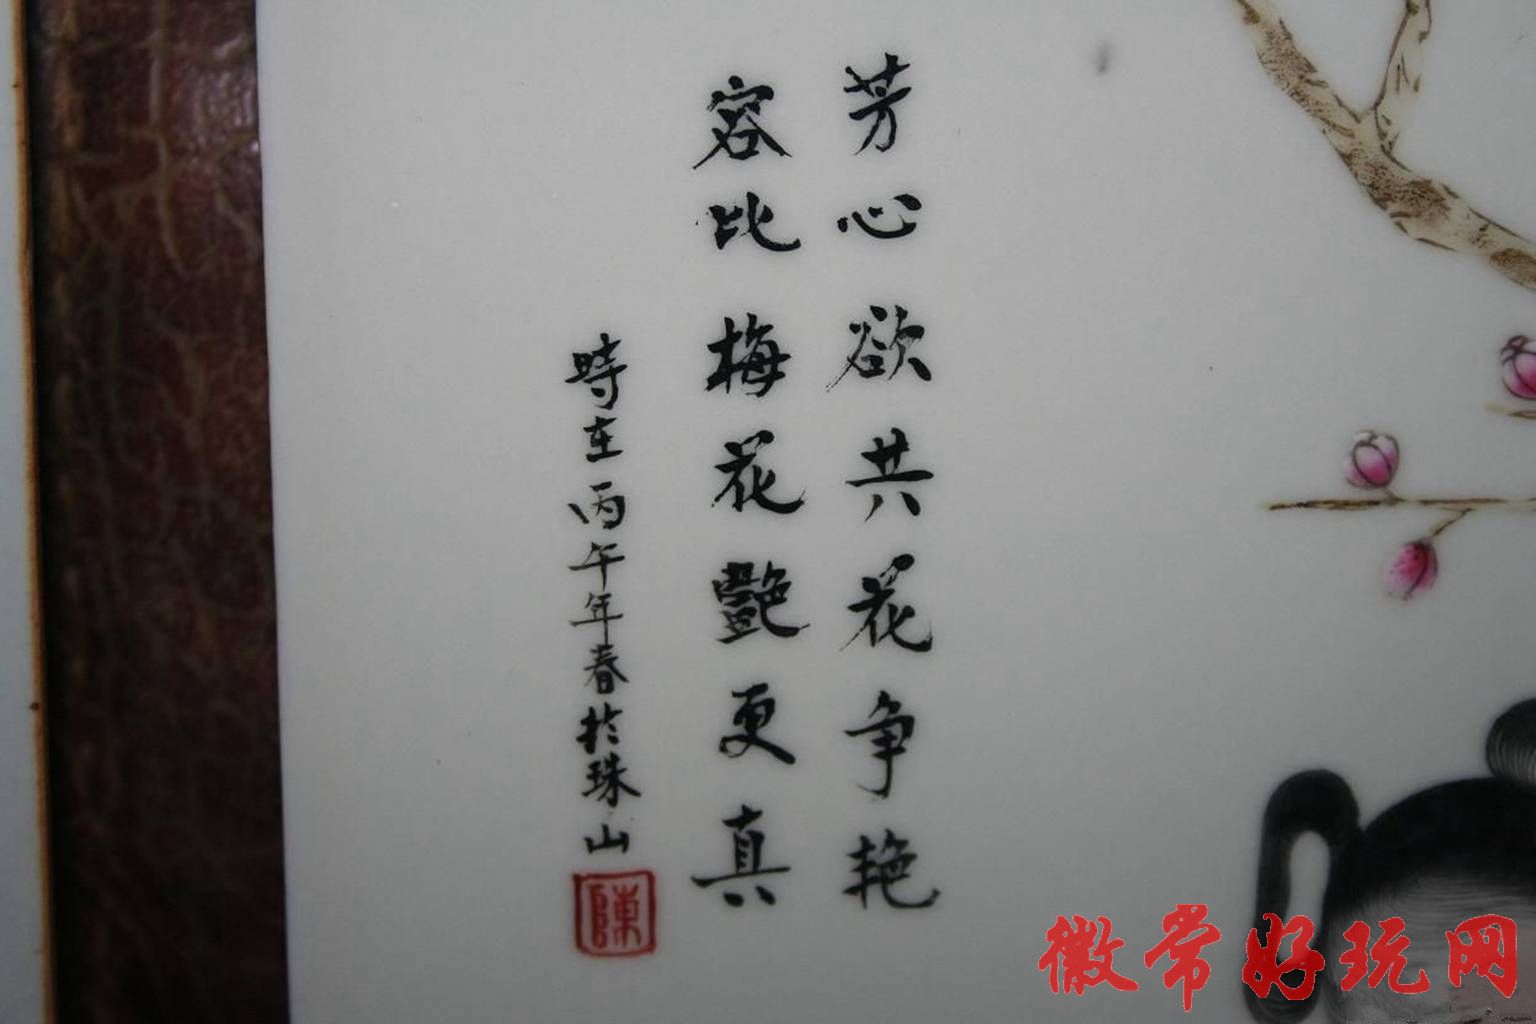 芳心欲共花争艳
容比梅花艷更真
時在丙午年春於珠山
陳
徽常好玩网